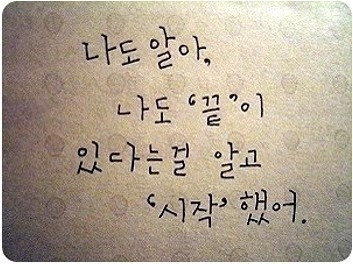 나도 알아,
나도 '끝'이
있다는걸 알고
'시작' 했어.